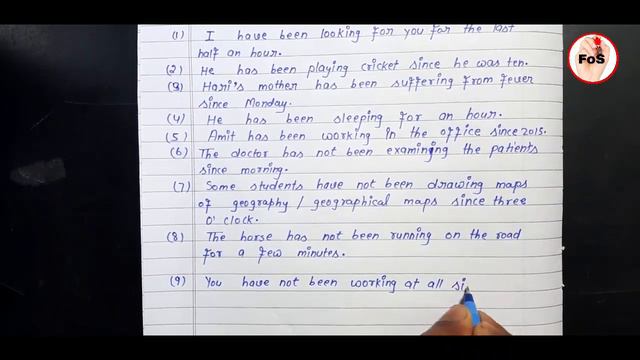 (1) I have been looking for you for the last
half an hour.
(2) He has been playing cricket since he was ten.
(3) Hari's mother has been suffering from fever
since Monday.
(4) He has been sleeping for an hour.
(5) Amit has been working in the office since 2015.
(6) The doctor has not been examining the patients
since morning.
(7) Some students have not been drawing maps
of geography / geographical maps since three
O' clock.
(8) The horse has not been running on the road
for a few minutes.
(9) You have not been working at all si
FoS